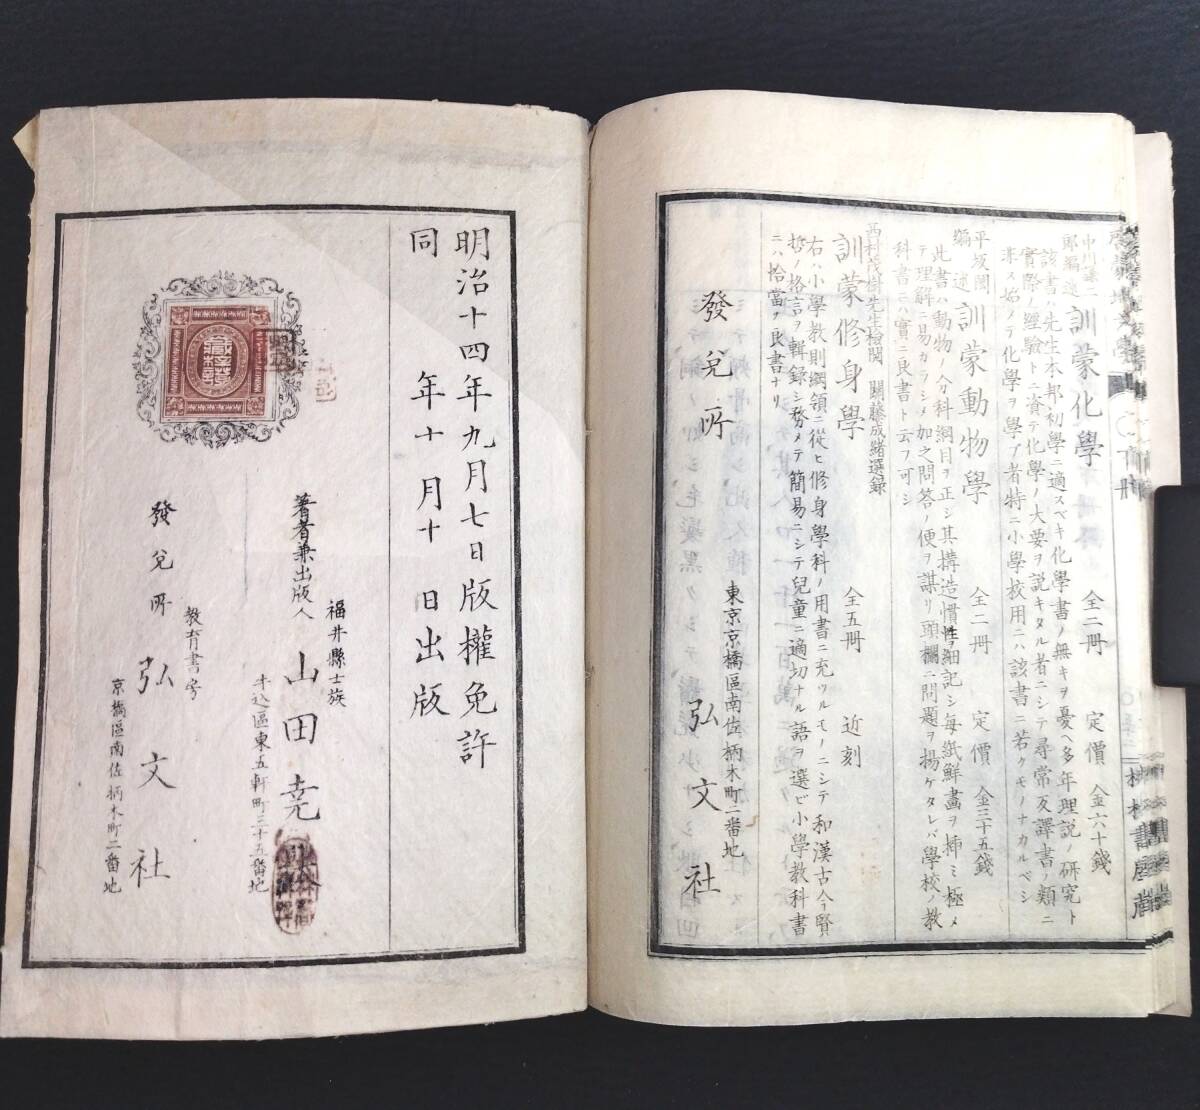 訓蒙化學 全二冊 定價 金六十錢
該書ハ先生本邦ノ初學ニ適スベキ化學書ノ無キヲ憂ヘ多年理説ノ研究ト
實際ノ經驗トニ資テ化學ノ大要ヲ説キタル者ニシテ尋常反譯書ノ類ニ
非ス始メテ化學ヲ學ブ者特ニ小學校用ニハ該書ニ若クモノナカルベシ
平坂閎編述 訓蒙動物學 全二冊 定價 金三十五錢
此書ハ動物ノ分科綱目ヲ正シ其構造慣性ヲ細記シ毎紙鮮畫ヲ揷ミ極メ
テ理解ニ易カラシメ加之問答ノ便ヲ謀リ頭欄ニ問題ヲ揚ケタレバ學校ノ教
科書ニハ實ニ良書ト云フ可シ
西村茂樹先生檢閲 關藤成緒選録
訓蒙修身學 全五冊 近刻
右ハ小學教則綱領ニ從ヒ修身學科ノ用書ニ充ツルモノニシテ和漢古今賢
哲ノ格言ヲ輯録シ務メテ簡易ニシテ兒童ニ適切ナル語ヲ選ビ小學教科書
ニハ恰當ノ良書ナリ
東京京橋區南佐柄木町二番地
發兌所 弘文社
明治十四年九月七日版權免許
同 年十月十 日出版
福井縣士族
著者兼出版人 山田堯
牛込區東五軒町三十五番地
教育書房
發兌所 弘文社
京橋區南佐柄木町二番地